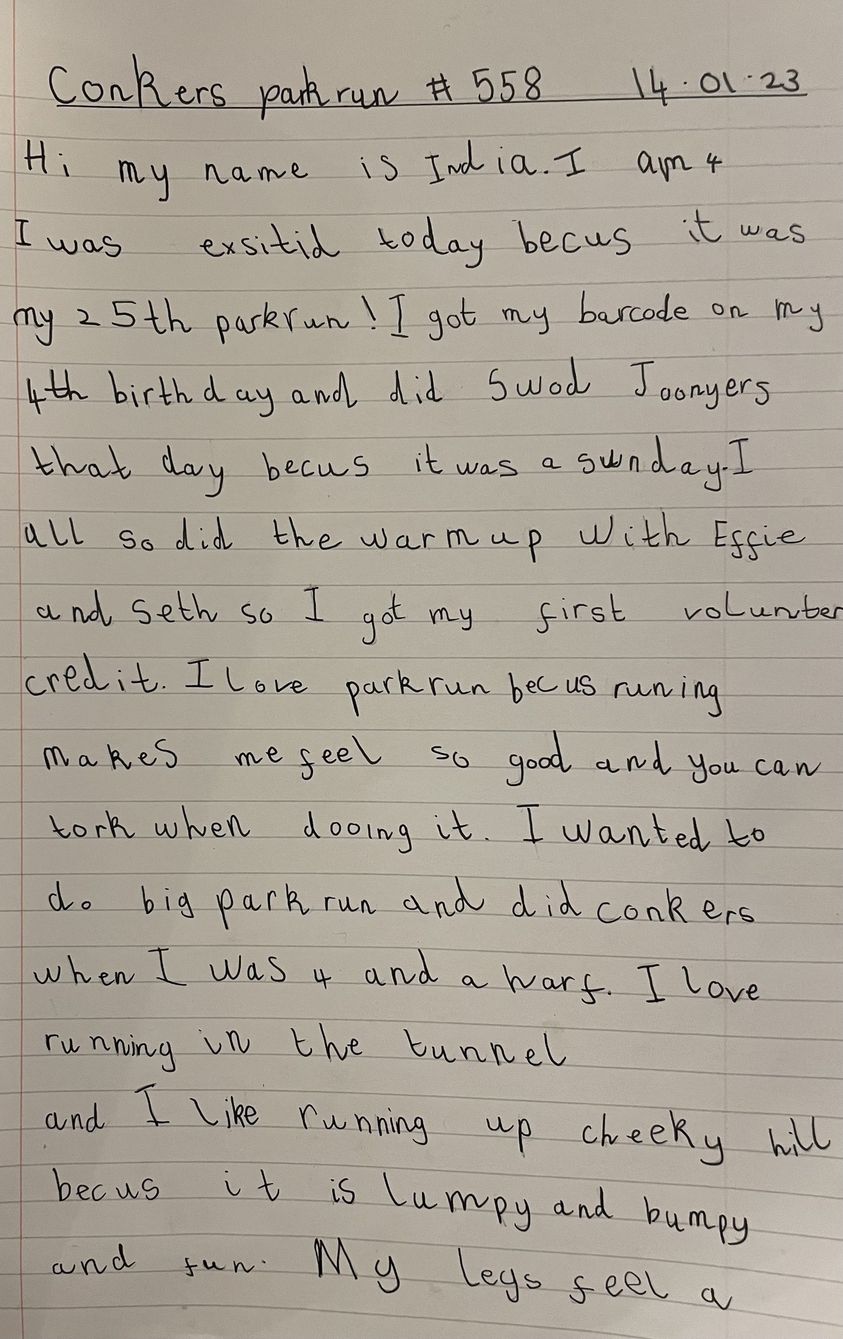 Conkers parkrun # 558 14.01.23
Hi my name is India. I am 4
I was exsitid today becus it was
my 25th parkrun! I got my barcode on my
4th birthday and did Swod Joonyers
that day becus it was a sunday. I
all so did the warm up with Effie
and Seth so I got my first volunter
credit. I love parkrun becus runing
makes me feel so good and you can
tork when dooing it. I wanted to
do big parkrun and did conkers
when I was 4 and a harf. I love
running in the tunnel
and I like running up cheeky hill
becus it is lumpy and bumpy
and fun. My legs feel a